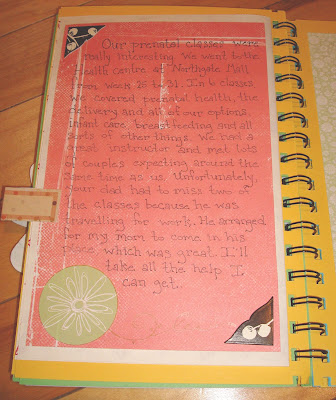 Our prenatal classes were
really interesting. We went to the
Health Centre at Northgate Mall
from week 25 to 31. In 6 classes
we covered prenatal health, the
delivery and all of our options,
infant care, breastfeeding and all
sorts of other things. We had a
great instructor and met lots
of couples expecting around the
same time as us. Unfortunately,
your dad had to miss two of
the classes because he was
travelling for work. He arranged
for my mom to come in his
place, which was great. I'll
take all the help I
can get.